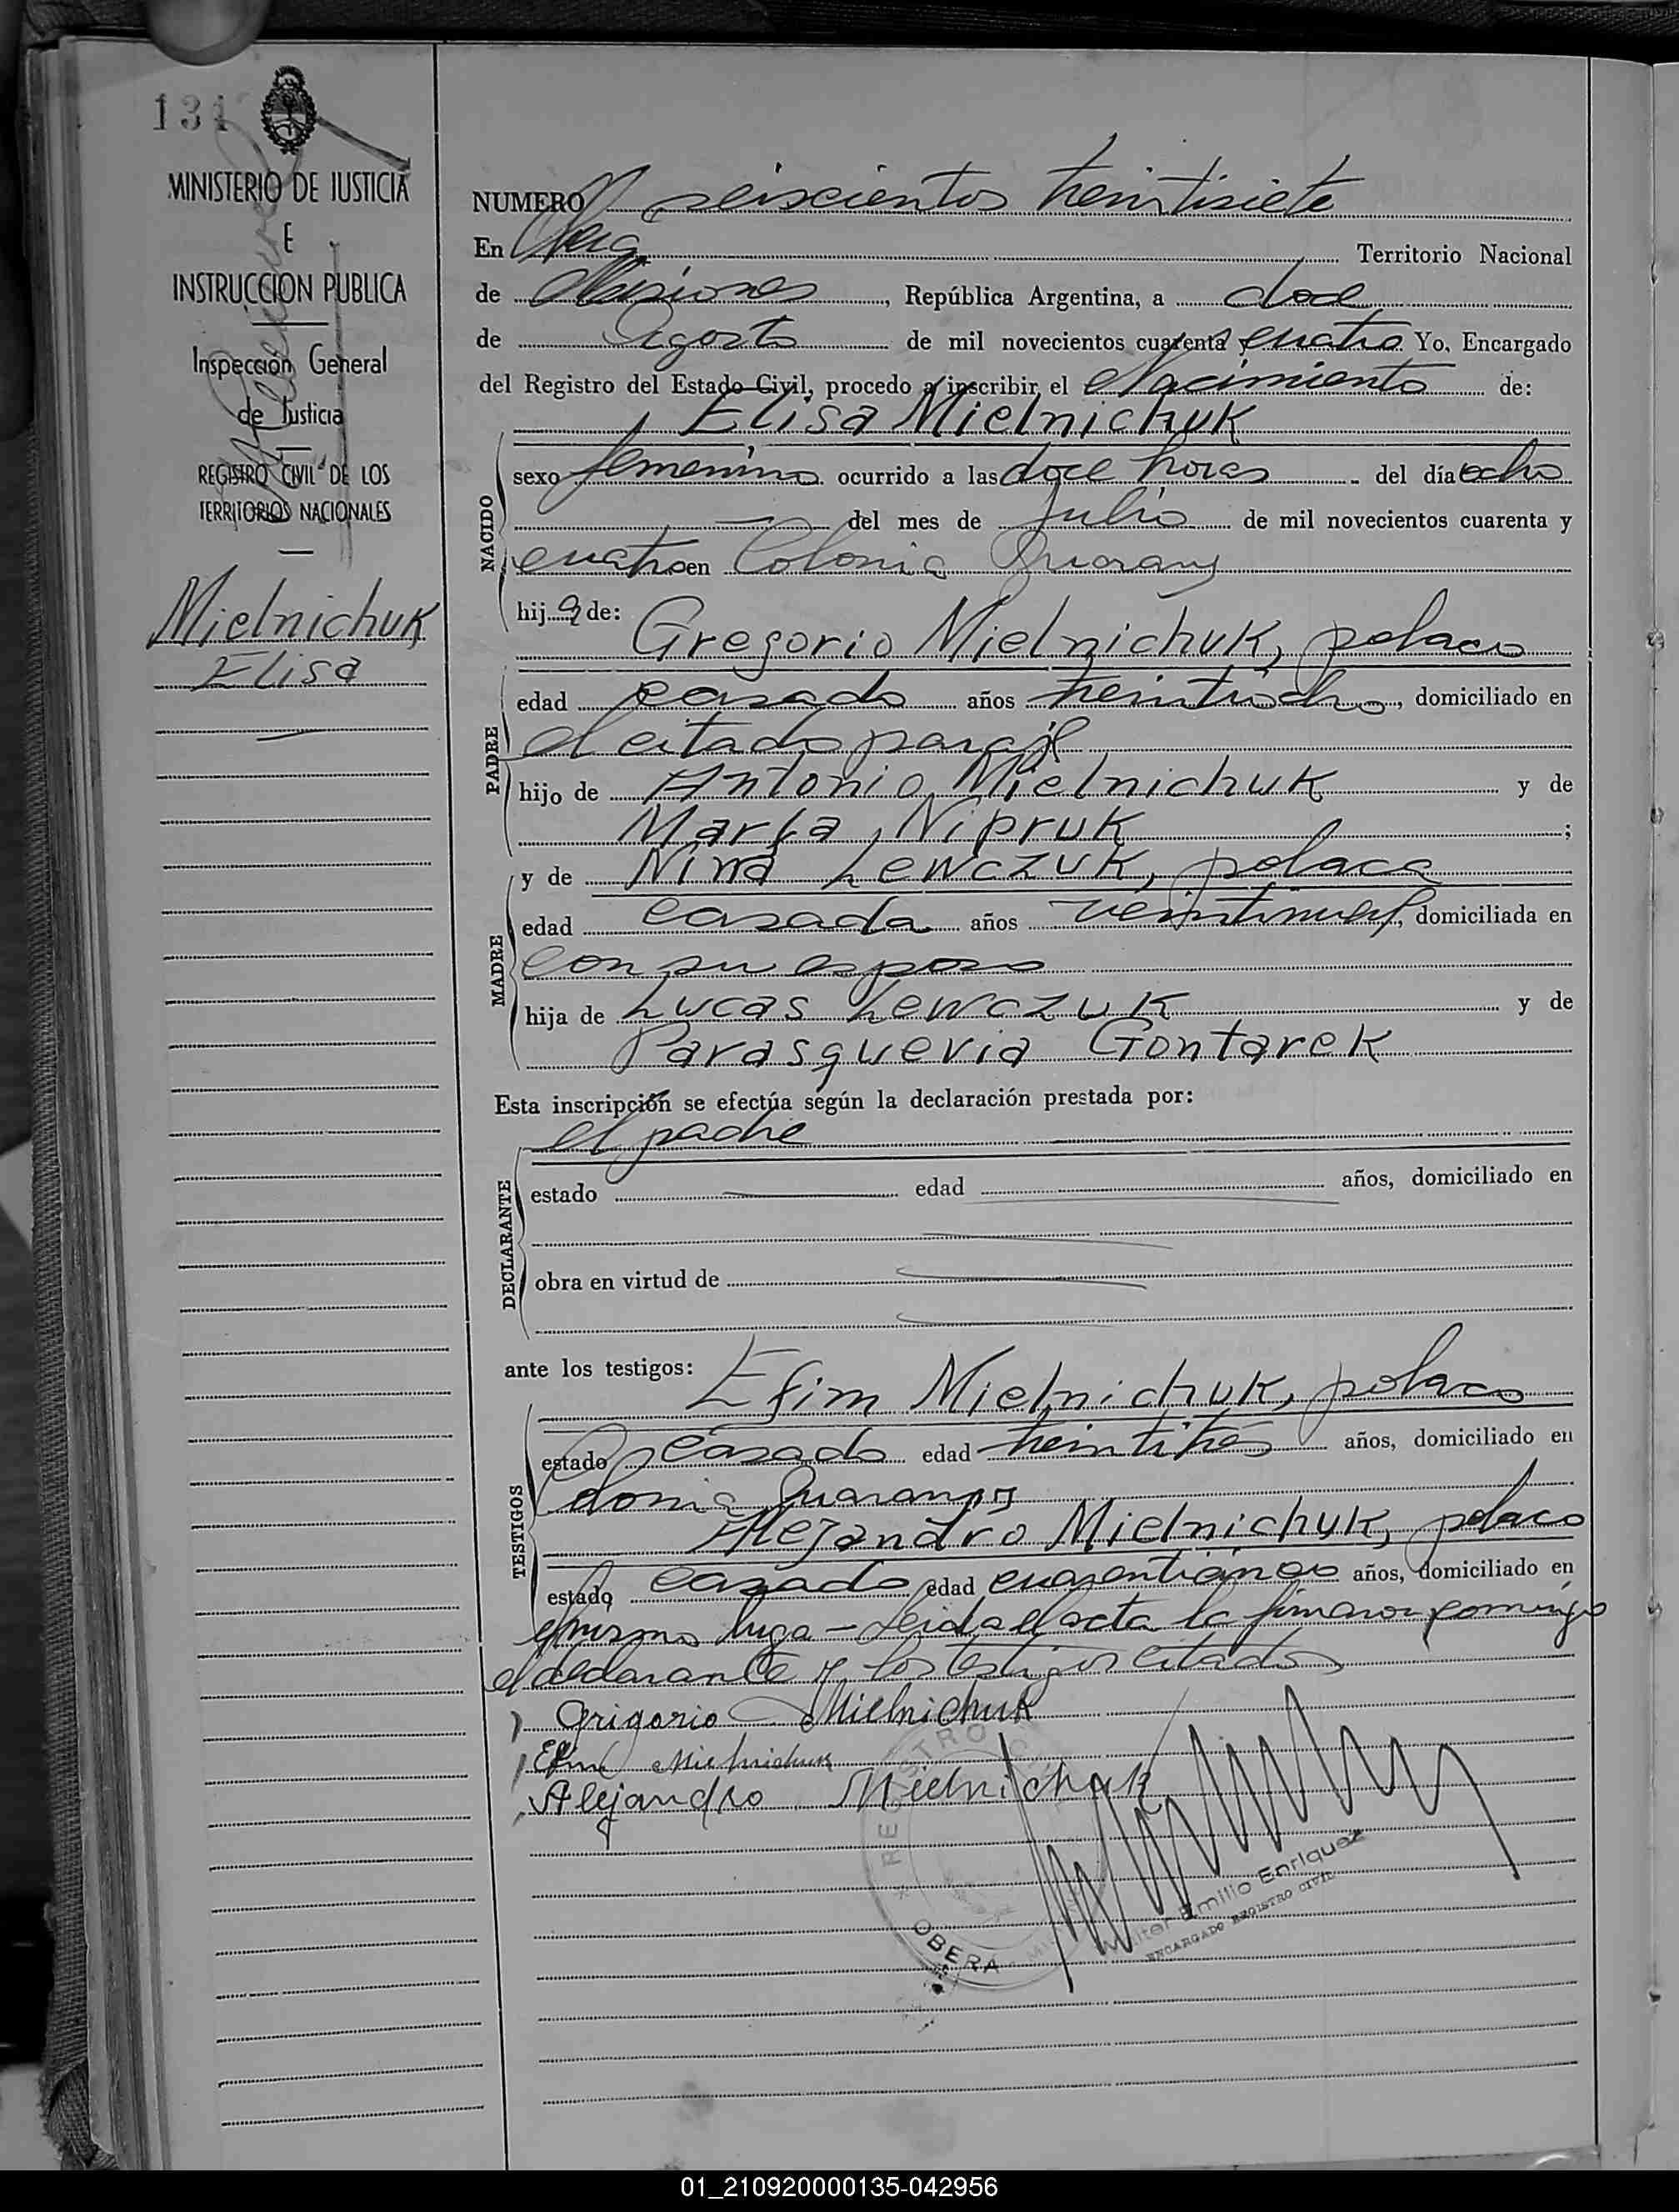 131
MINISTERIO DE JUSTICIA
E
INSTRUCCION PUBLICA
Inspección General
de Justicia
REGISTRO CIVIL DE LOS
TERRITORIOS NACIONALES
Mielnichuk
Elisa
NUMERO seiscientos treintisiete
En Oberá Territorio Nacional
de Misiones, República Argentina, a doce
de Agosto de mil novecientos cuarenta y cuatro Yo, Encargado
del Registro del Estado Civil, procedo a inscribir el Nacimiento de:
Elisa Mielnichuk
NACIDO
sexo femenino ocurrido a las doce horas del día ocho
del mes de Julio de mil novecientos cuarenta y
cuatro en Colonia Guarany
hija de:
Gregorio Mielnichuk, polaco
PADRE
edad casado años treintiocho, domiciliado en
el citado paraje
hijo de Antonio Mielnichuk y de
Marta Nipruk;
y de Nina Lewczuk, polaca
MADRE
edad casada años veintinueve, domiciliada en
con su esposo
hija de Lucas Lewczuk y de
Parasquevia Gontarek
Esta inscripción se efectúa según la declaración prestada por:
el padre
DECLARANTE
estado edad años, domiciliado en
obra en virtud de
ante los testigos:
Efim Mielnichuk, polaco
TESTIGOS
estado casado edad treintitres años, domiciliado en
Colonia Guarany
Alejandro Mielnichuk, polaco
estado casado edad años, domiciliado en
el mismo lugar - Leida el acta la firmaron conmigo
el declarante y los testigos citados
Grigorio Mielnichuk
Efim Mielnichuk
Alejandro Mielnichuk
REGISTRO
OBERA
Walter Emilio Enriquez
ENCARGADO REGISTRO CIVIL
01_210920000135-042956